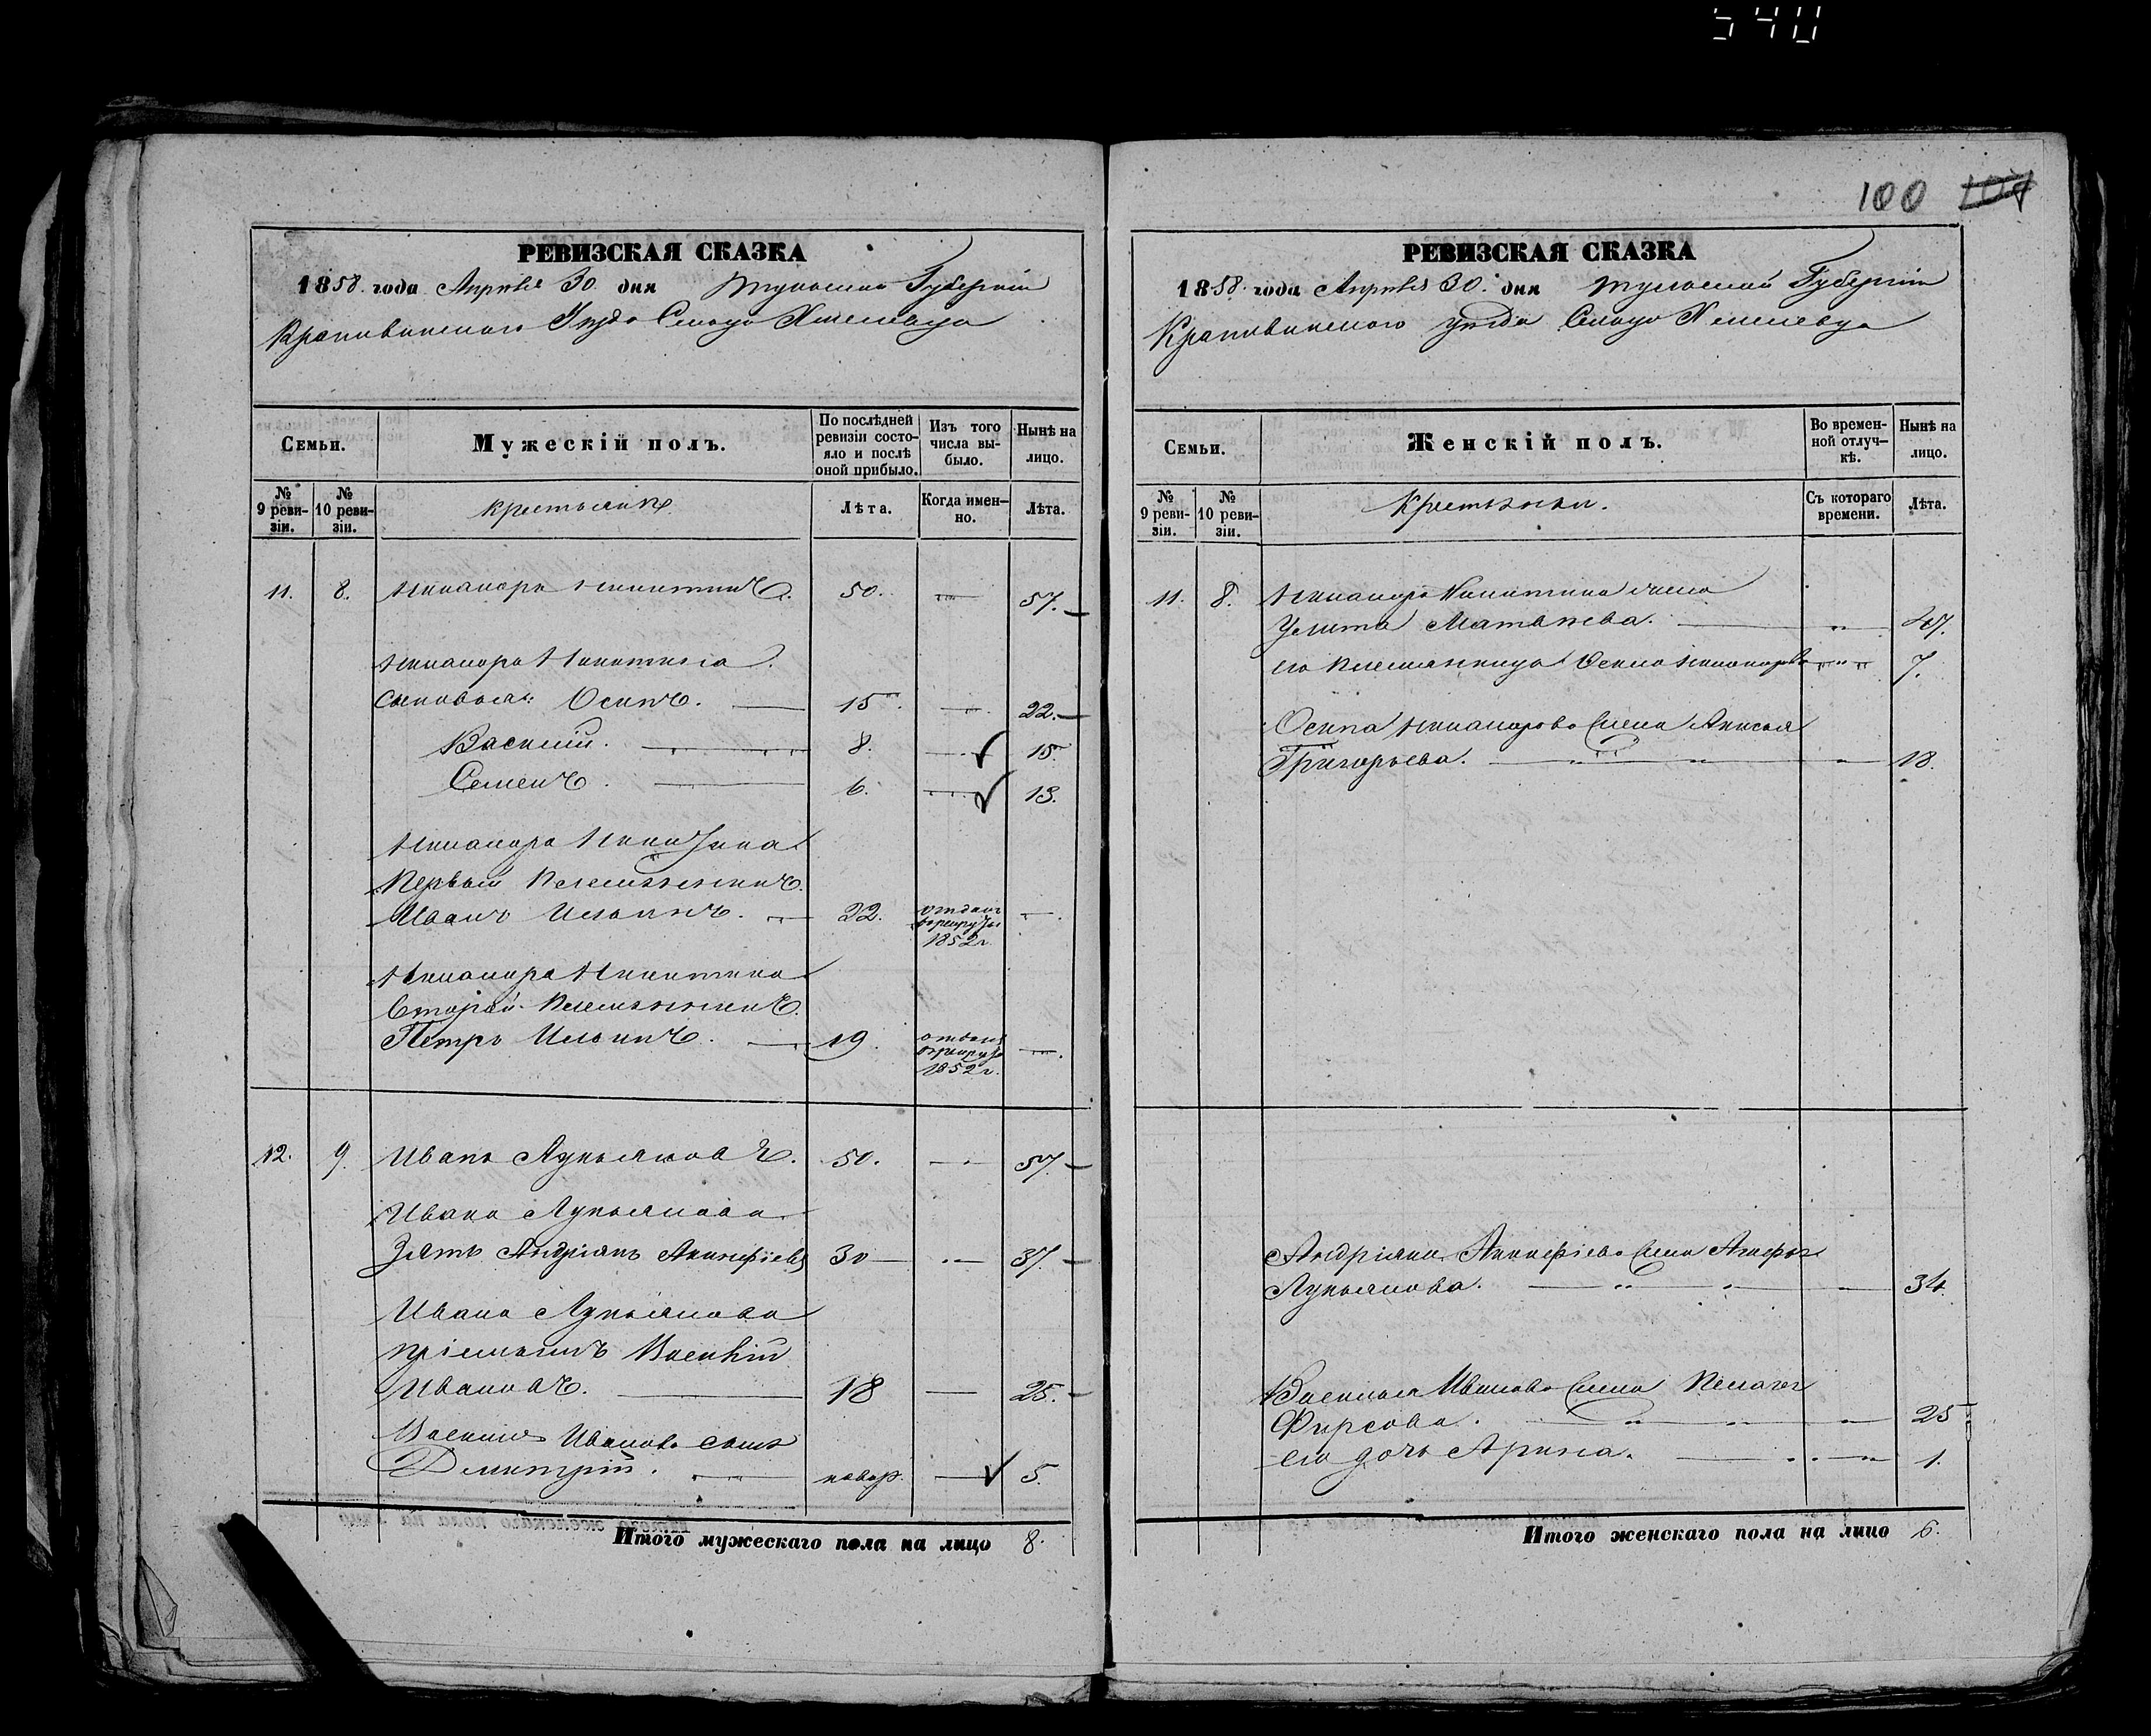 540
100
РЕВИЗСКАЯ СКАЗКА
1858 года Апрѣля 30 дня Тульской Губерніи
Крапивинскаго Уѣзда Сельцо
Семьи.
Мужескій полъ.
По послѣдней ревизіи состояло и послѣ оной прибыло.
Изъ того числа выбыло.
Нынѣ на лицо.
№ 9 ревизіи.
№ 10 ревизіи.
Крестьяне
Лѣта.
Когда именно.
Лѣта.
11. 8. Никаноръ Никитинъ. 50. 57.
Никанора Никитина
сыновья: Осипъ. 15. 22.
Василій. 8. 15.
Семенъ. 6. 13.
Никанора Никитина
Первый племянникъ
Иванъ Ильинъ. 22. отданъ в рекруты 1852 г.
Никанора Никитина
Второй племянникъ
Петръ Ильинъ. 19. отданъ в рекруты 1852 г.
12. 9. Иванъ Лукьяновъ. 50. 57.
Ивана Лукьянова
Зять Андріянъ Акинфіевъ 30 37.
Ивана Лукьянова
пріемышъ Василій
Ивановъ. 18 25.
Василія Иванова сынъ
Дмитрій. новор. 5.
Итого мужескаго пола на лицо 8.
РЕВИЗСКАЯ СКАЗКА
1858 года Апрѣля 30. дня Тульской Губерніи
Крапивинскаго уѣзда Сельцо
Семьи.
Женскій полъ.
Во временной отлучкѣ.
Нынѣ на лицо.
№ 9 ревизіи.
№ 10 ревизіи.
Крестьянки.
Съ котораго времени.
Лѣта.
11. 8. Никанора Никитина жена
Улита Матвѣева. 47.
его племянница 7.
Осипа Никанорова жена Анисья
Григорьева. 18.
Андріяна Акинфіева жена
Лукьянова. 34.
Василья Иванова жена Пелагея
Фирсова. 25
его дочь Арина. 1.
Итого женскаго пола на лицо 6.